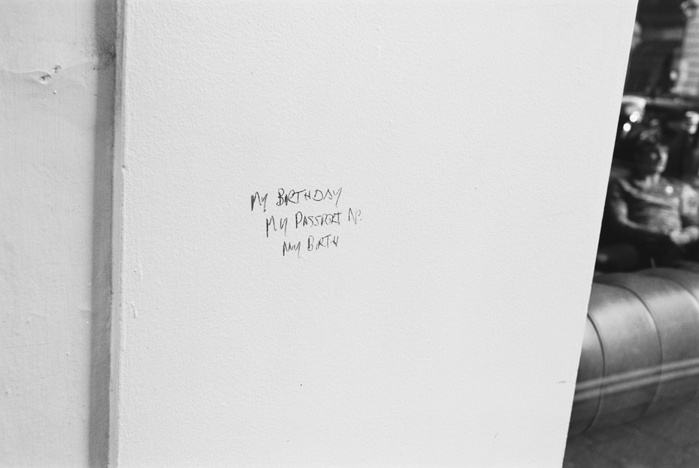 MY BIRTHDAY
MY PASSPORT No.
MY BIRTH